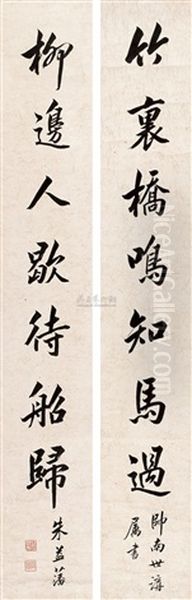 竹裏橋鳴知馬過
帥南世講
屬書
柳邊人歇待船歸
朱益藩